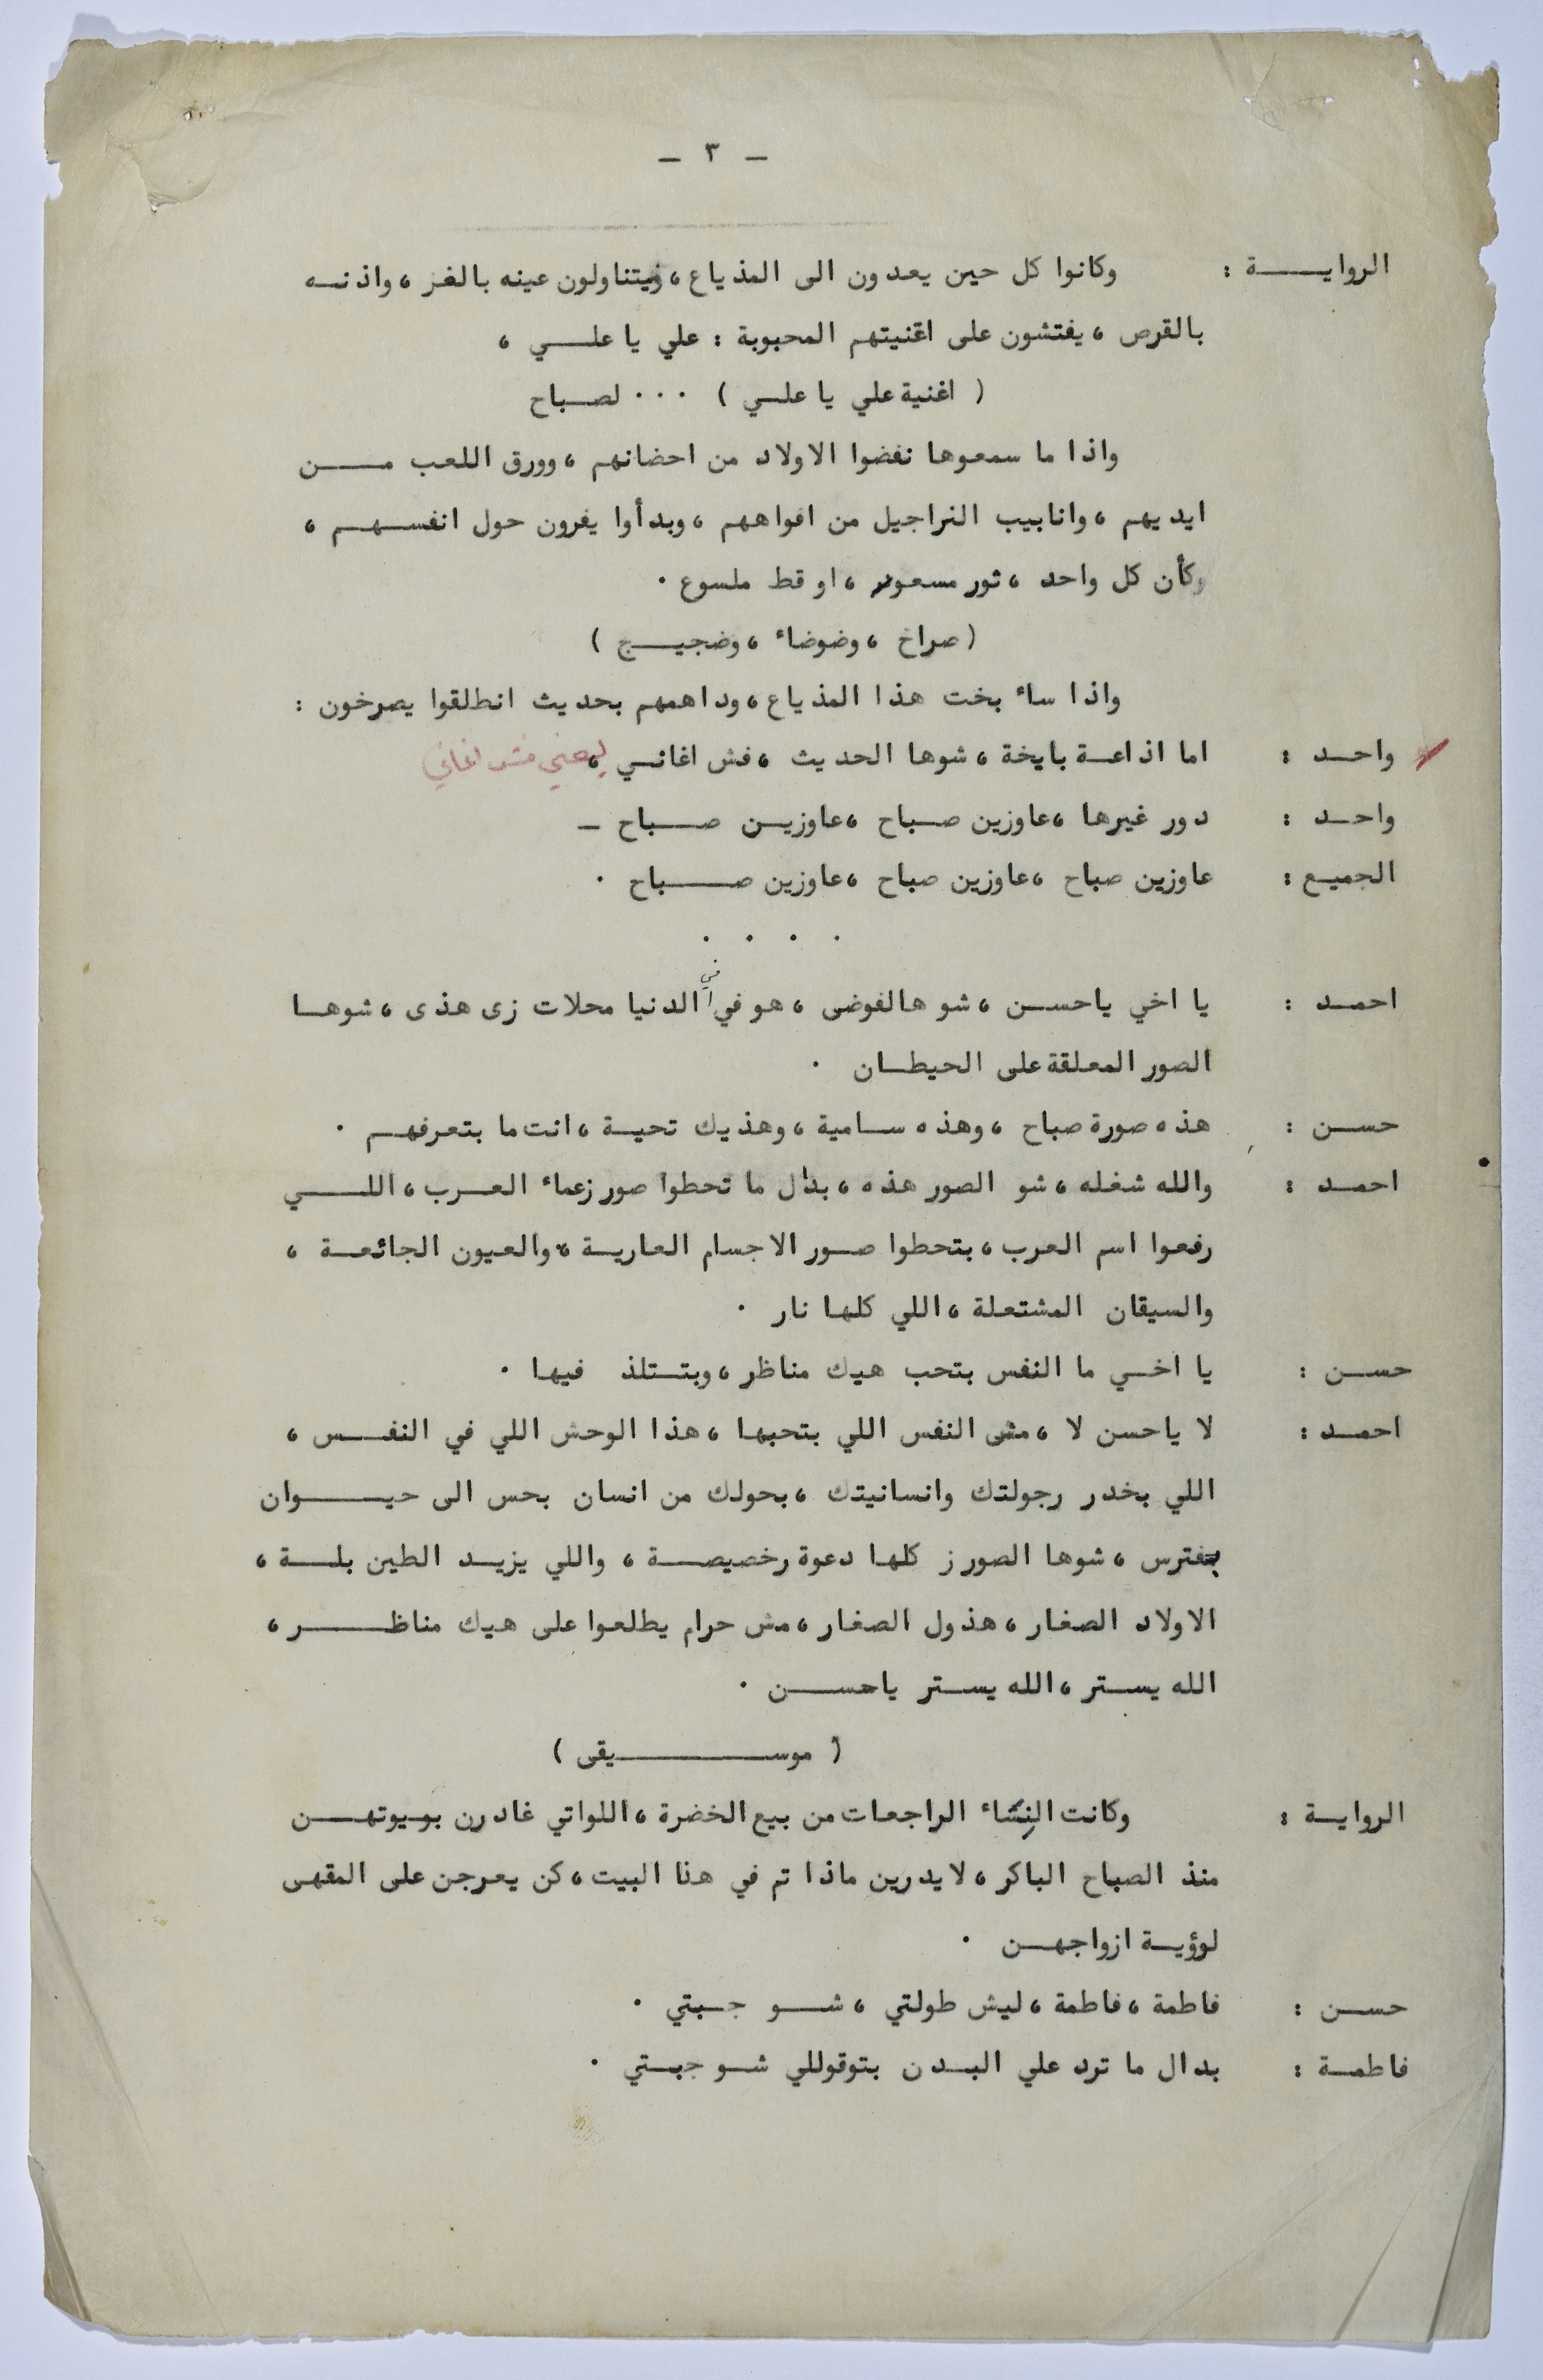 - ٣ -
الروايـــــة : وكانوا كل حين يعدون الى المذياع، فيتناولون عينه بالغز، واذنـه
بالقرص، يفتشون على اغنيتهم المحبوبة : علي يا علـــي،
( اغنية علي يا علـي ) ... لصباح
واذا ما سمعوها نفضوا الاولاد من احضانهم، وورق اللعب مـــن
ايديهم، وانابيب النراجيل من افواههم، وبدأوا يفرون حول انفسـهـم،
وكأن كل واحد، ثور مسعور، او قط ملسوع .
( صراخ، وضوضاء، وضجيـج )
واذا ساء بخت هذا المذياع، وداهمهم بحديث انطلقوا يصرخون :
واحـد : اما اذاعـة بايخة، شوها الحديث، فش اغانـي، يعني فش اغاني
واحـد : دور غيرها، عاوزين صباح، عاوزيـن صـباح -
الجميـع : عاوزين صباح، عاوزين صباح، عاوزين صـــباح .
. . . .
احمـد : يا اخي ياحسـن، شو هالفوضى، هو في في الدنيا محلات زى هذى، شوهـا
الصور المعلقة على الحيطـان .
حسـن : هذه صورة صباح، وهذه سـامية، وهذيك تحيـة، انت ما بتعرفهـم .
احمـد : والله شغله، شو الصور هذه، بدال ما تحطوا صور زعماء العـرب، اللـــي
رفعوا اسم العرب، بتحطوا صـور الاجسام العاريـة، والعيون الجائعـة،
والسيقان المشتعلة، اللي كلها نار .
حسـن : يا اخـي ما النفس بتحب هيك مناظر، وبتـستلذ فيها .
احمـد : لا ياحسن لا، مش النفس اللي بتحبها، هذا الوحش اللي في النفـس،
اللي بخدر رجولتك وانسانيتك، بحولك من انسان بحس الى حيـــوان
بفترس، شوها الصور ز كلها دعوة رخصيصـة، واللي يزيـد الطين بلـة،
الاولاد الصغار، هذول الصغار، مش حرام يطلعوا على هيك مناظـــر،
الله يسـتر، الله يسـتر ياحســن .
( موســـــيقى )
الروايـة : وكانت النساء الراجعات من بيع الخضرة، اللواتي غادرن بويوتهـــن
منذ الصباح الباكر، لا يدرين ماذا تم في هذا البيت، كن يعرجن على المقهى
لوؤيـة ازواجهـن .
حسـن : فاطمة، فاطمة، ليش طولتي، شـــو جـبتي .
فاطمـة : بدال ما ترد علي البـدن بتوقوللي شـو جبـتي .